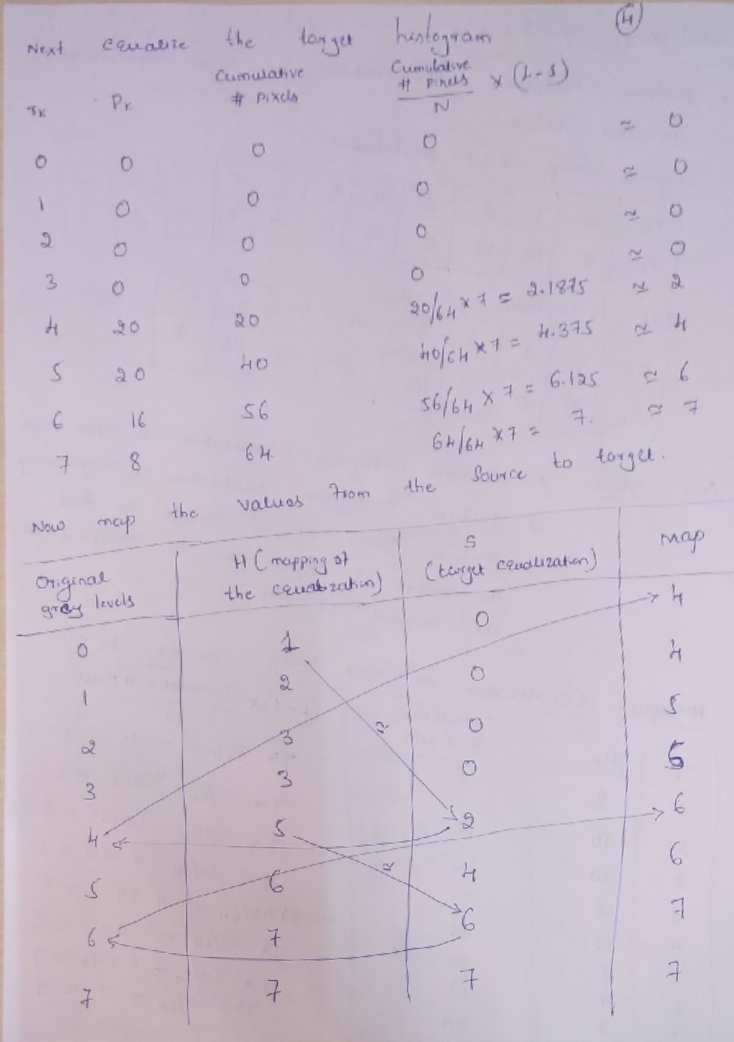 4
Next equalize the target histogram
rk Pk Cumulative # Pixels Cumulative # Pixels / N × (L-1)
0 0 0 0 ≃ 0
1 0 0 0 ≃ 0
2 0 0 0 ≃ 0
3 0 0 0 ≃ 0
4 20 20 20/64 × 7 = 2.1875 ≃ 2
5 20 40 40/64 × 7 = 4.375 ≃ 4
6 16 56 56/64 × 7 = 6.125 ≃ 6
7 8 64 64/64 × 7 = 7. ≃ 7
Now map the values from the Source to target.
Original gray levels H (mapping of the equalization) S (target equalization) Map
0 1 0 4
1 2 0 4
2 3 0 5
3 3 0 5
4 5 2 6
5 6 4 6
6 7 6 7
7 7 7 7
≃
≃